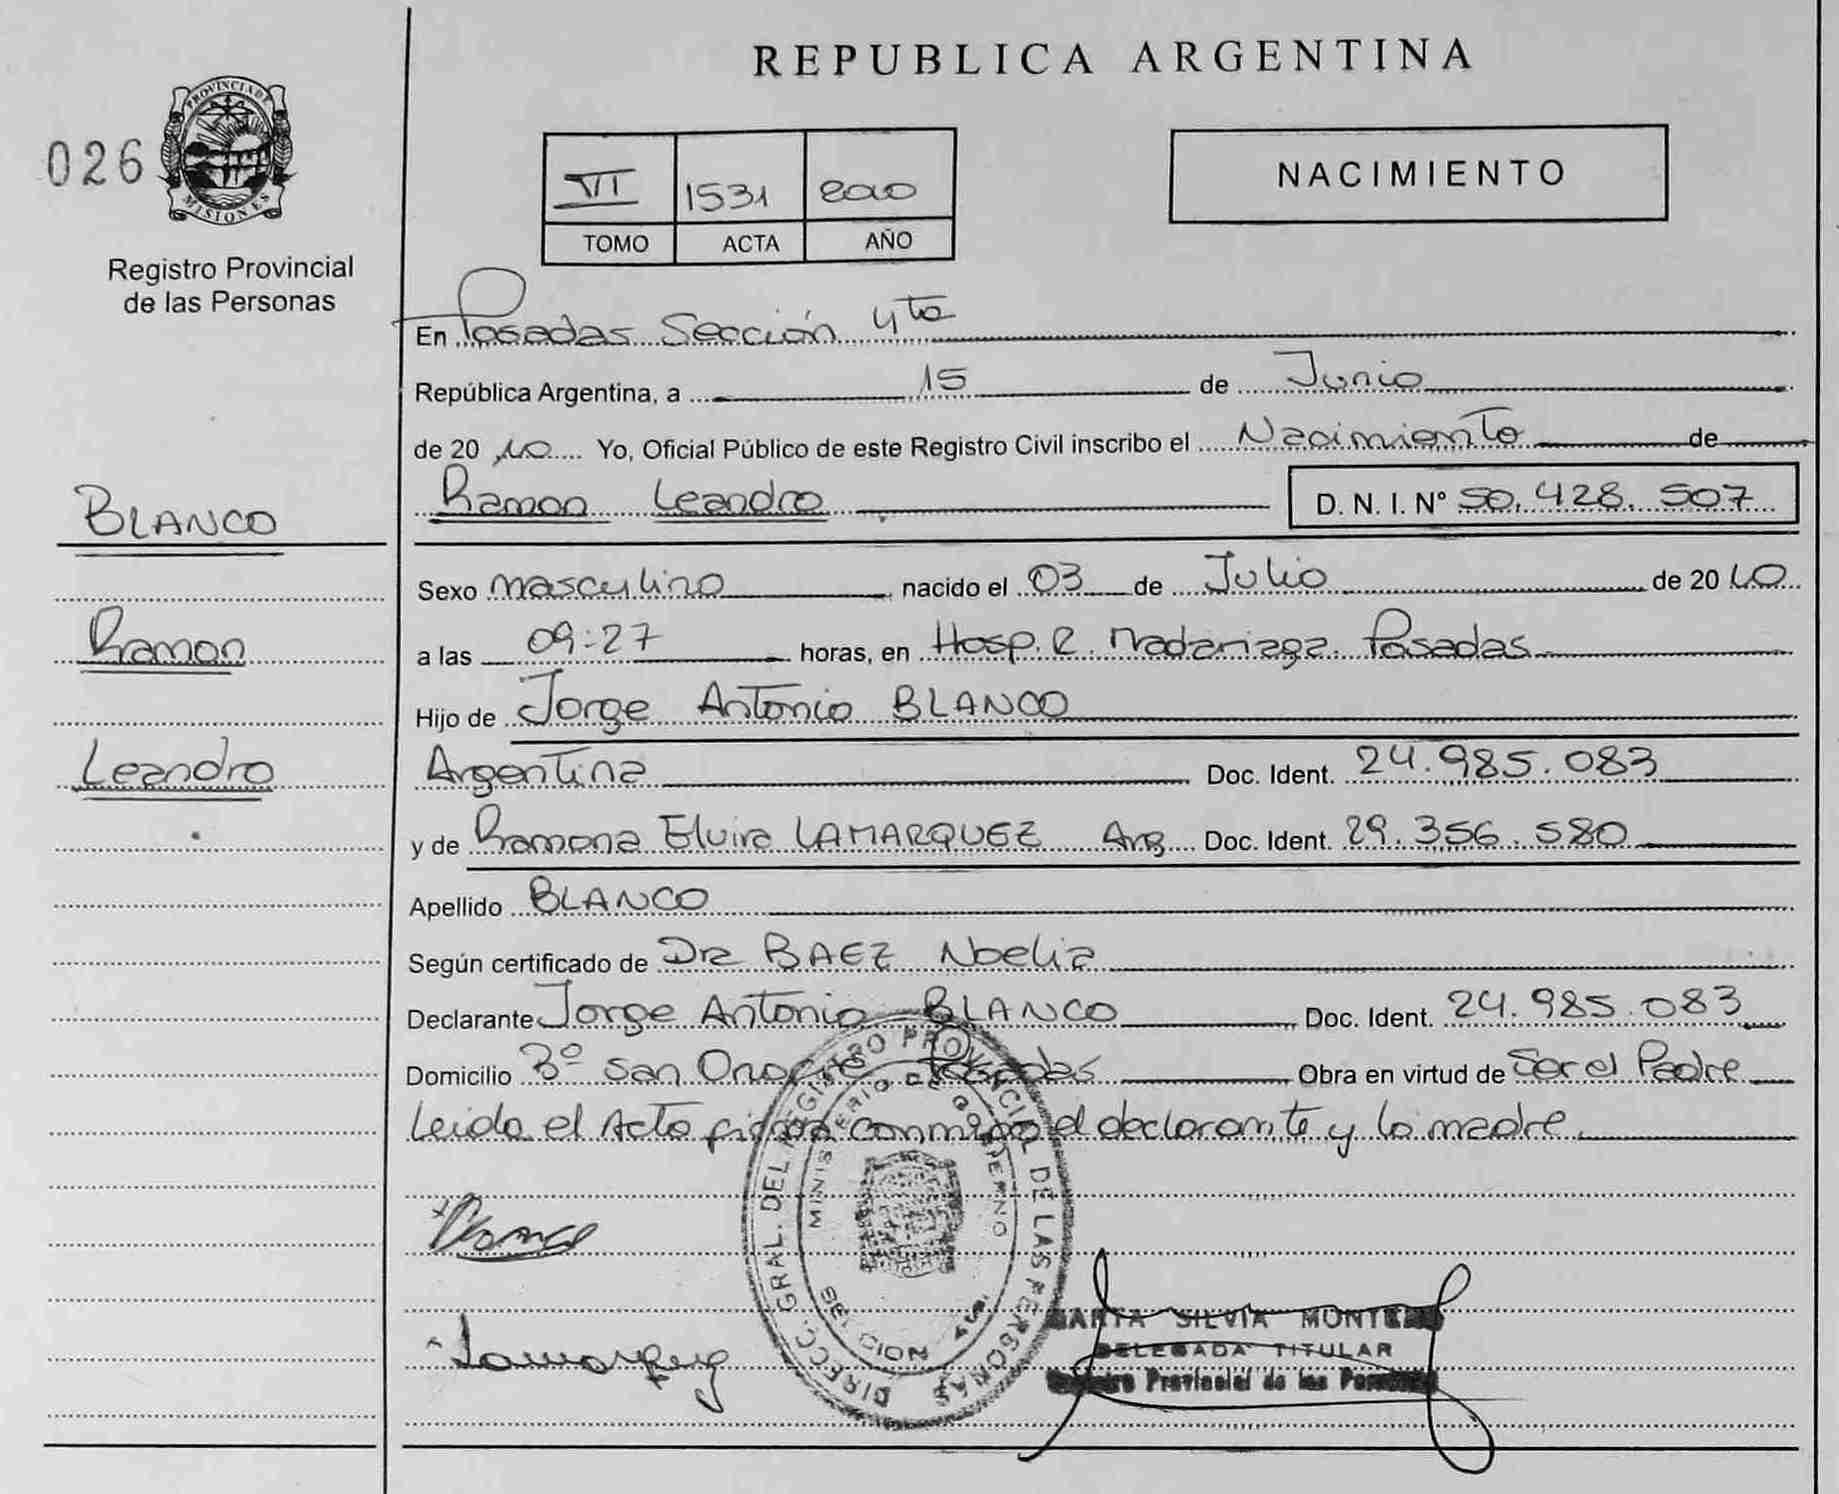 REPUBLICA ARGENTINA
026
PROVINCIA DE MISIONES
Registro Provincial
de las Personas
VII 1531 2010
TOMO ACTA AÑO
NACIMIENTO
En Posadas Sección 4ta
República Argentina, a 15 de Junio
de 2010 Yo, Oficial Público de este Registro Civil inscribo el Nacimiento de
Ramon Leandro D. N. I. Nº 50.428.507
BLANCO
Ramon
Leandro
Sexo masculino nacido el 03 de Julio de 2010
a las 09:27 horas, en Hosp. R. Madariaga. Posadas
Hijo de Jorge Antonio BLANCO
Argentina Doc. Ident. 24.985.083
y de Ramona Elvira LAMARQUEZ Arg. Doc. Ident. 29.356.580
Apellido BLANCO
Según certificado de Dra BAEZ Noelia
Declarante Jorge Antonio BLANCO Doc. Ident. 24.985.083
Domicilio Bº San Onofre Posadas Obra en virtud de Ser el Padre
Leida el Acta firman conmigo el declarante y la madre.
DIRECC. GRAL. DEL REGISTRO PROVINCIAL DE LAS PERSONAS
MINISTERIO DE GOBIERNO
SECCION 4ta
Lamarquez
MARTA SILVIA MONTE
DELEGADA TITULAR
Registro Provincial de las Personas